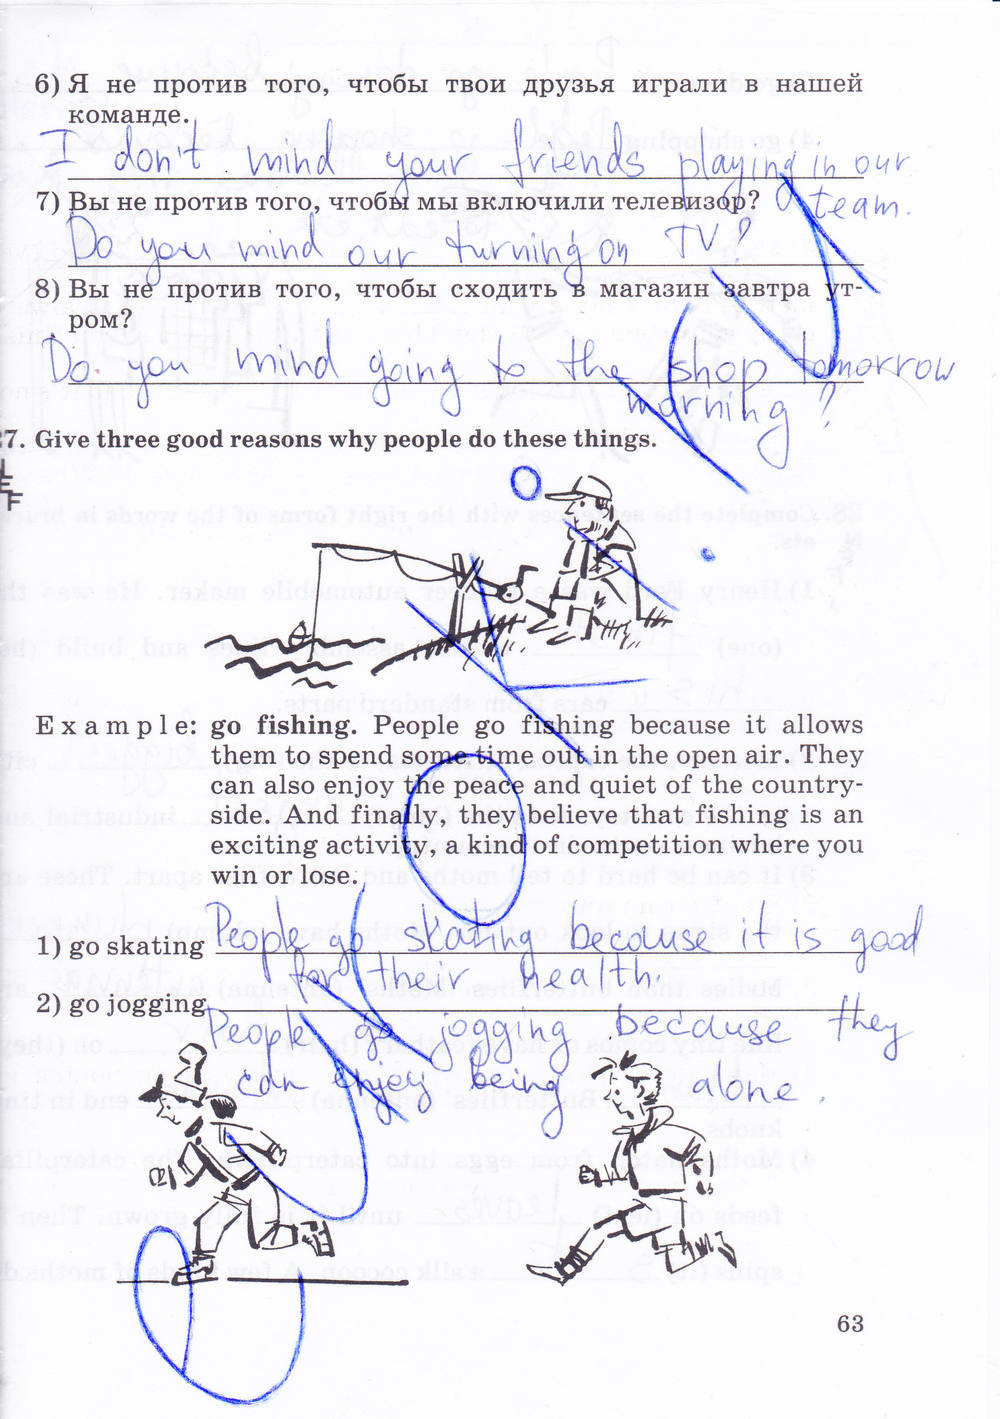 6) Я не против того, чтобы твои друзья играли в нашей
команде.
I don't mind your friends playing in our
team.
7) Вы не против того, чтобы мы включили телевизор?
Do you mind our turning on TV?
8) Вы не против того, чтобы сходить в магазин завтра ут-
ром?
Do you mind going to the shop tomorrow
morning?
7. Give three good reasons why people do these things.
Example: go fishing. People go fishing because it allows
them to spend some time out in the open air. They
can also enjoy the peace and quiet of the country-
side. And finally, they believe that fishing is an
exciting activity, a kind of competition where you
win or lose.
1) go skating People go skating because it is good
for their health.
2) go jogging People go jogging because they
can enjoy being alone.
63